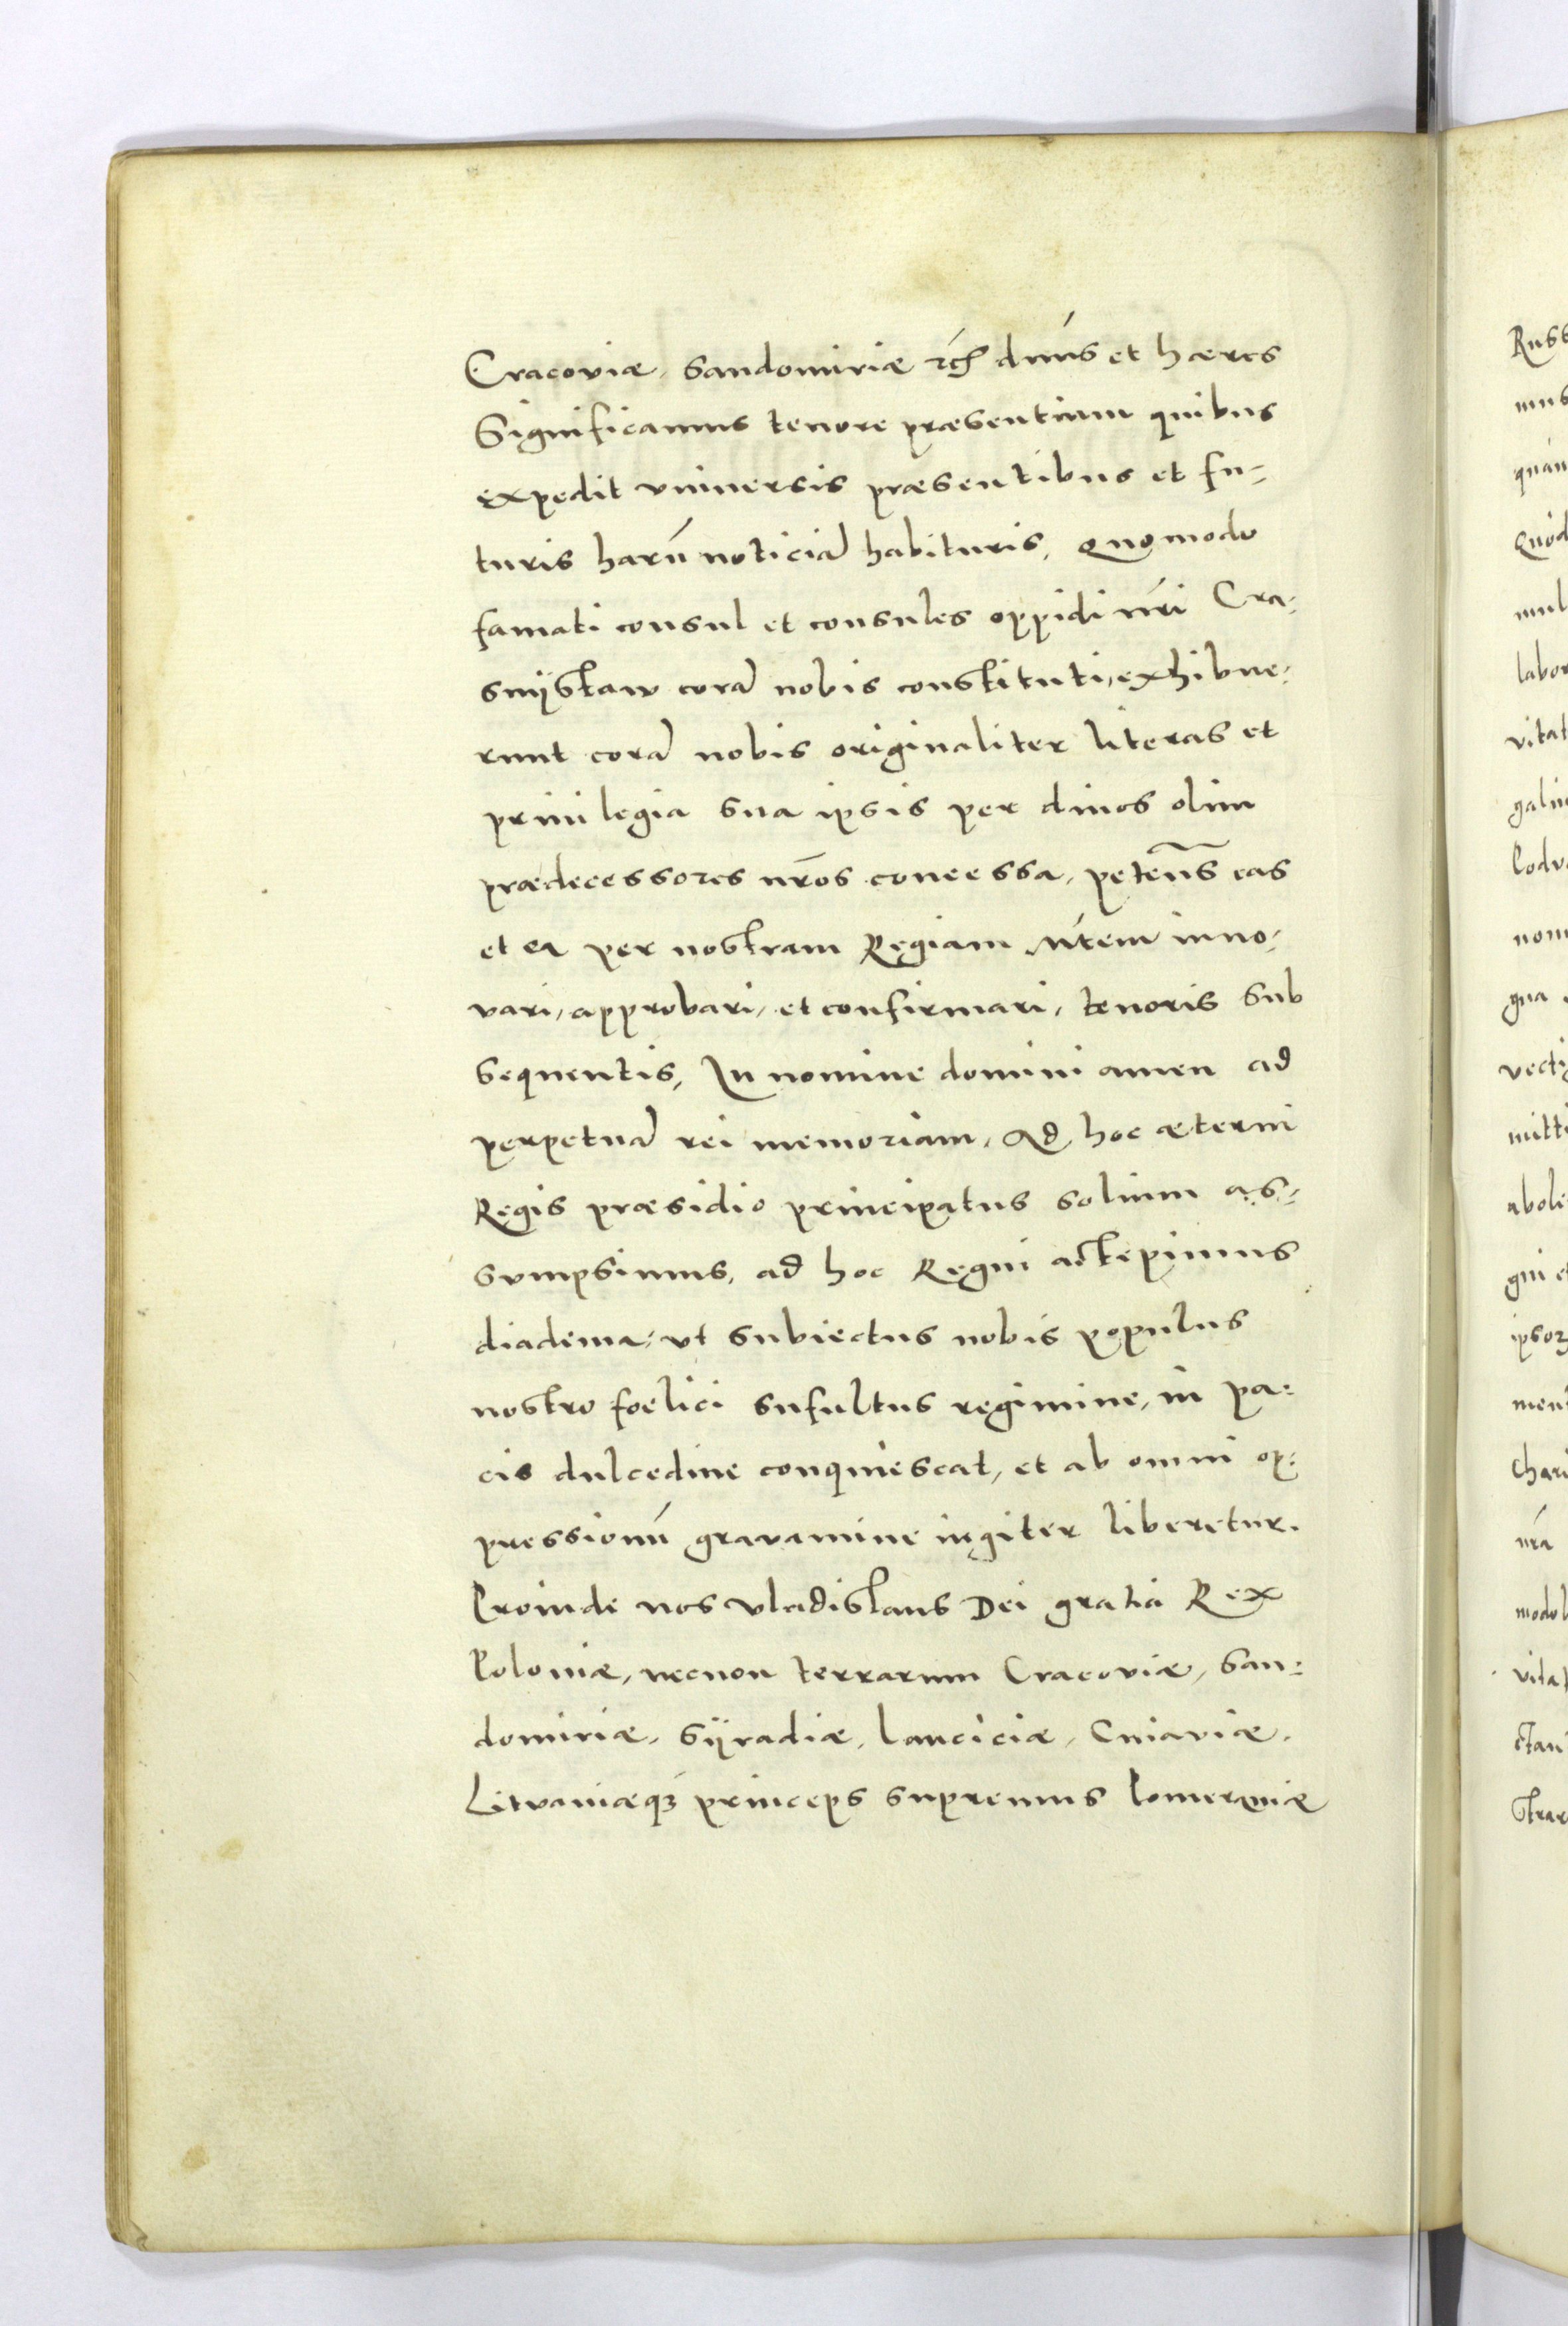 Cracoviæ, Sandomiriæ &c̃ dńus et hæres
Significamus tenore præsentium quibus
expedit vniuersis præsentibus et fu-
turis harū noticiā habituris, Quomodo
famati consul et consules oppidi nr̃i Cra-
snÿstaw corā nobis constituti, exhibue-
runt corā nobis originaliter literas et
priuilegia sua ipsis per diuos olim
prædecessores nr̄os concessa, peteñs eas
et ea per nostram Regiam M̃tem inno-
vari, approbari, et confirmari, tenoris sub
sequentis, In nomine domini amen ad
perpetuā rei memoriam, Ad hoc æterni
Regis præsidio principatus solium as-
sumpsimus, ad hoc Regni accepimus
diadema, vt subiectus nobis populus
nostro foelici sufultus regimine, in pa-
cis dulcedine conquiescat, et ab omni op-
pressionū gravamine iugiter liberetur.
Proinde nos Vladislaus Dei gratia Rex
Poloniæ, necnon terrarum Cracoviæ, San-
domiriæ, Sÿradiæ, Lanciciæ, Cuiaviæ,
Litvaniæqꝫ princeps supremus Pomeraniæ
Russ
mus
quàm
Quòd
mul
labor
vitat
nom
gna
vecti
mitti
abole
gni et
ipsor
ment
Chari
nr̃a
modol
vitat
ctan
strar